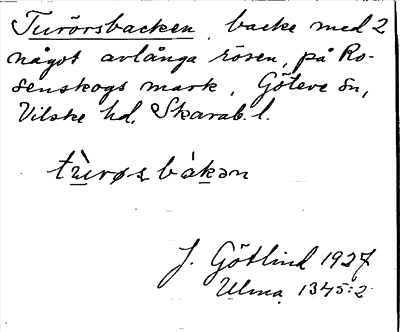 Turörsbacken, backe med 2
något avlånga rösen, på Ro-
senskogs mark, Göteve sn,
Vilske hd, Skarab. l.
tùrøs bàkən
J. Götlind 1927
Ulma 1345:2